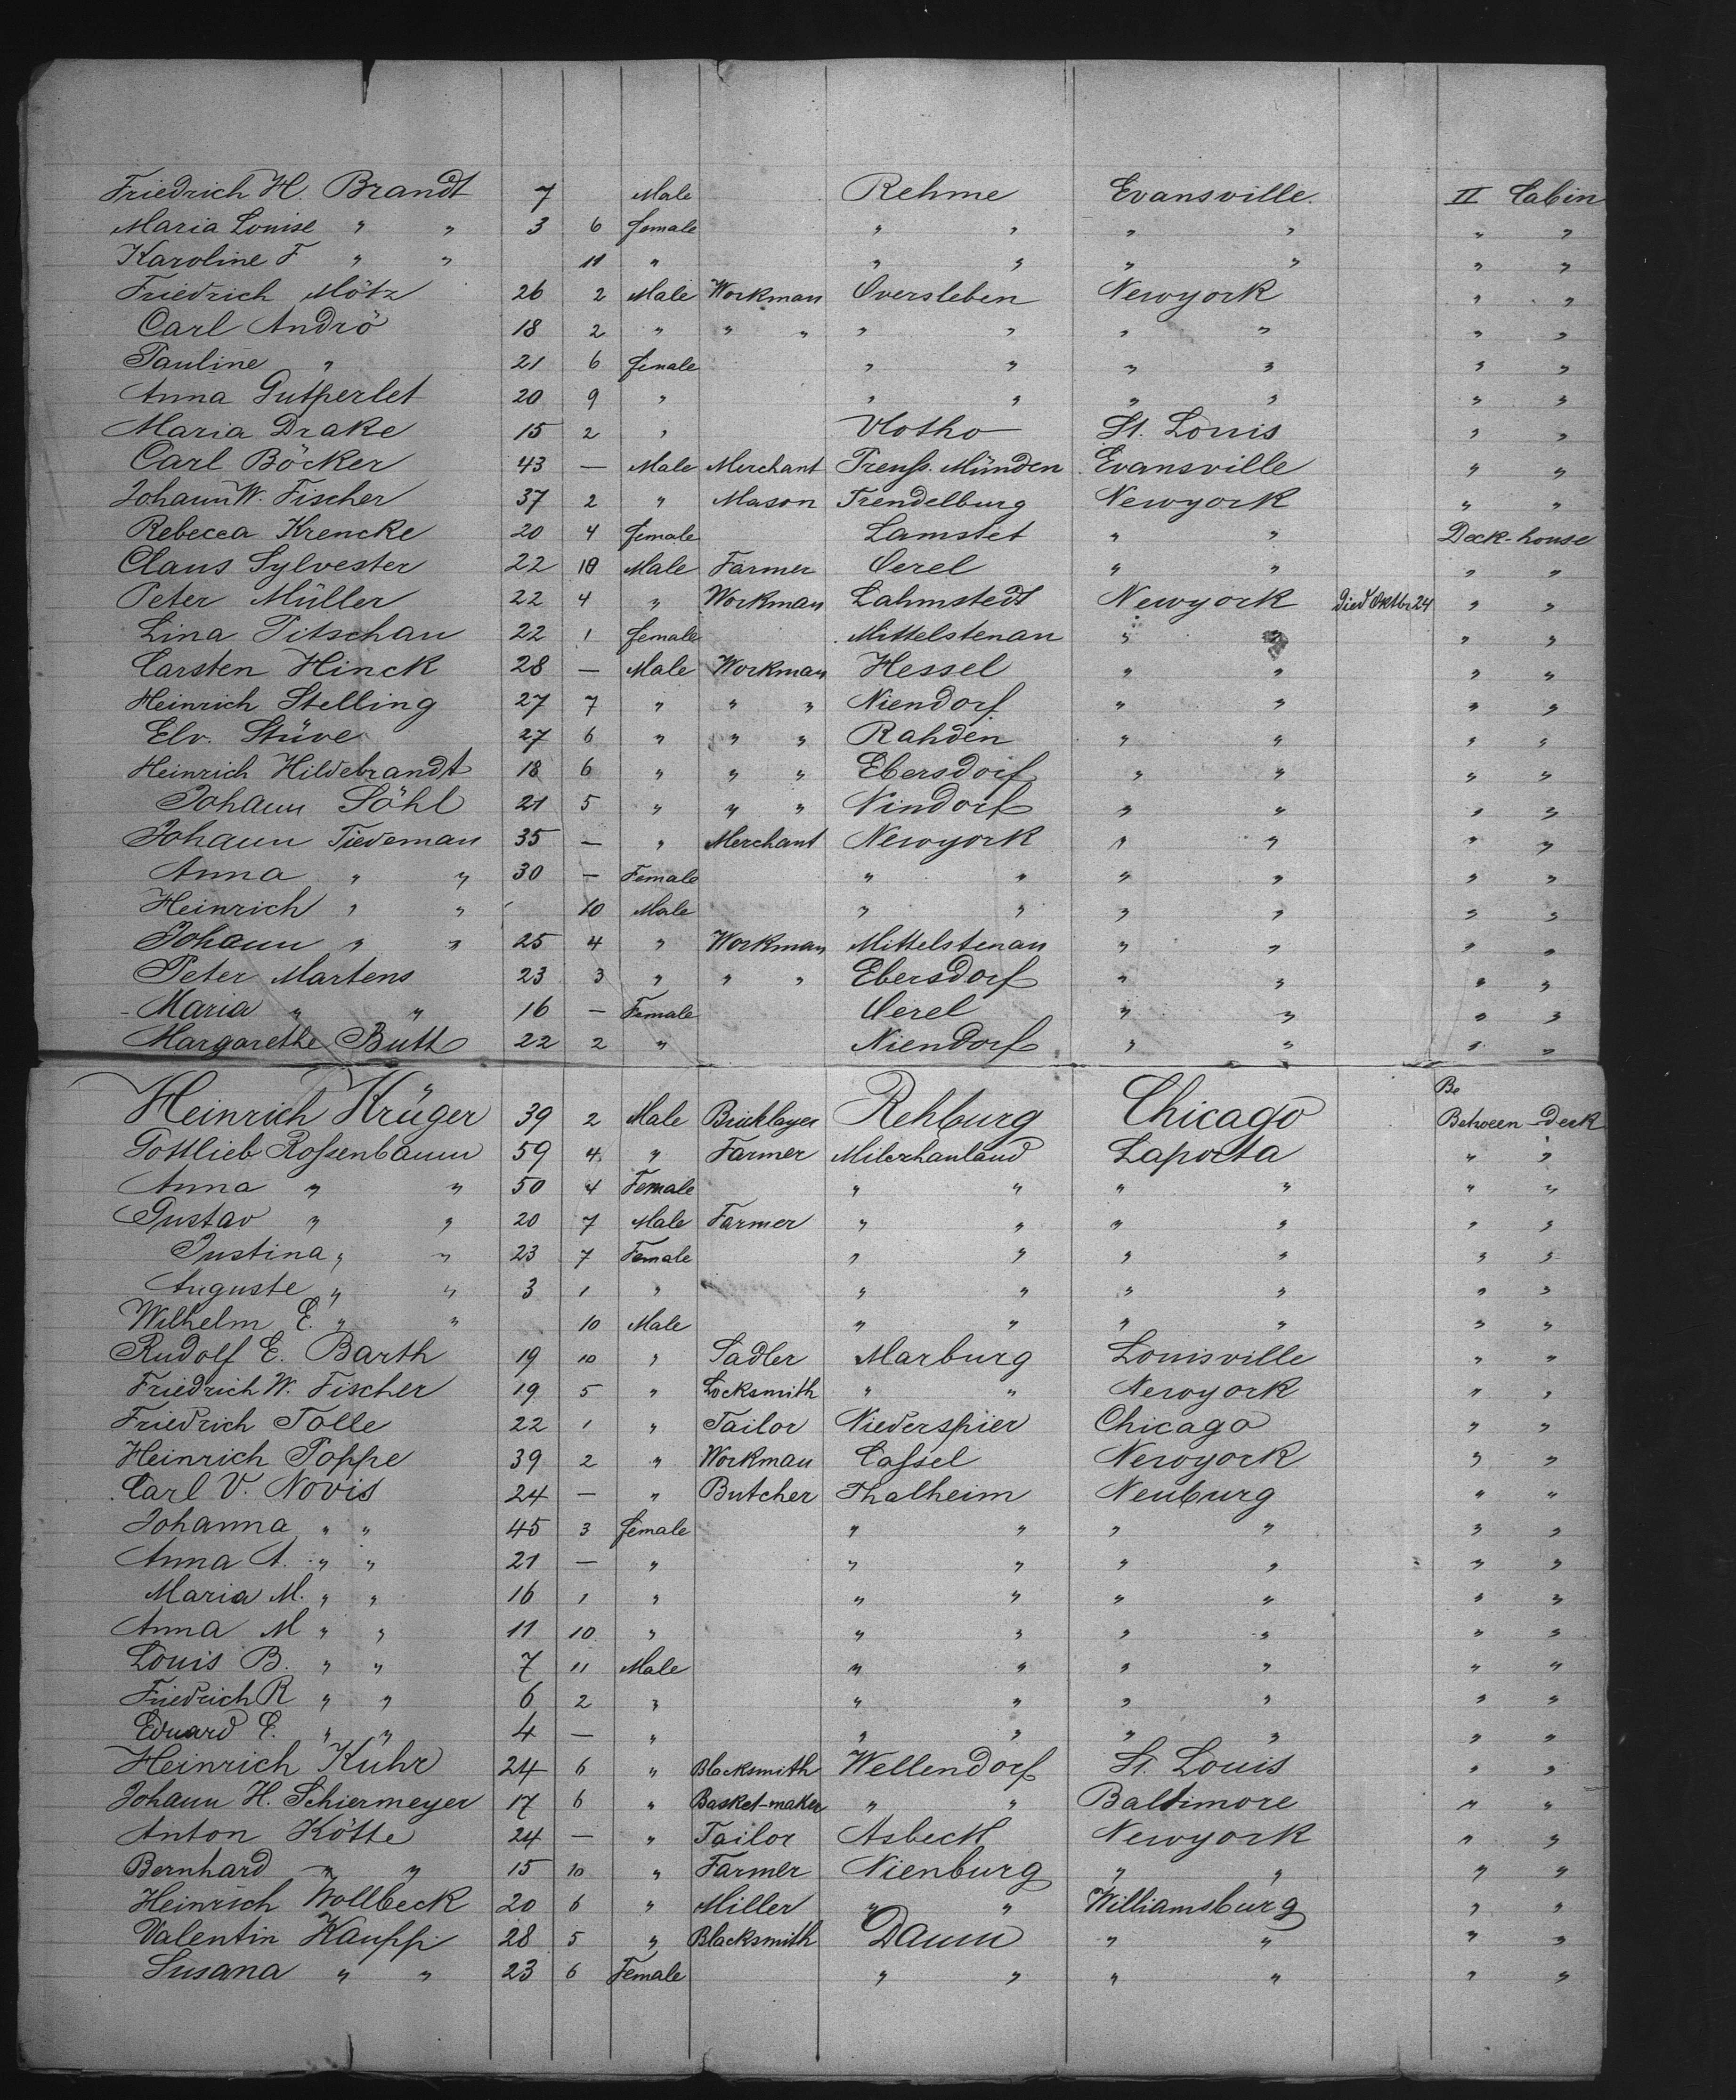 Friedrich H. Brandt 7 Male Rehme Evansville. II Cabin
Maria Louise " " 3 6 female " " " " " "
Karoline F " " 11 " " " " " " "
Friedrich Mötz 26 2 Male Workman Oversleben Newyork " "
Carl Andrö 18 2 " " " " " " " " "
Pauline " 21 6 female " " " " " "
Anna Gutperlet 20 9 " " " " " " "
Maria Drake 15 2 " Vlotho St. Louis " "
Carl Böcker 43 — Male Merchant Preuſs. Münden Evansville " "
Johann W. Fischer 37 2 " Mason Trendelburg Newyork " "
Rebecca Krencke 20 4 female Lamstet " " Deck-house
Claus Sylvester 22 10 Male Farmer Oerel " " " "
Peter Müller 22 4 " Workman Lahmstedt Newyork Died Oktbr 24 " "
Lina Pitschau 22 1 female Mittelstenau " " " "
Carsten Hinck 28 — Male Workman Hessel " " " "
Heinrich Stelling 27 7 " " " Niendorf " " " "
Elv. Stüve 27 6 " " " Rahden " " " "
Heinrich Hildebrandt 18 6 " " " Ebersdorf " " " "
Johann Söhl 21 5 " " " Nindorf " " " "
Johann Tiedeman 35 — " Merchant Newyork " " " "
Anna " " 30 — Female " " " " " "
Heinrich " " 10 Male " " " " " "
Johann " " 25 4 " Workman Mittelstenau " " " "
Peter Martens 23 3 " " " Ebersdorf " " " "
Maria " " 16 — Female Oerel " " " "
Margarethe Butt 22 2 " Niendorf " " " "
Be
Heinrich Krüger 39 2 Male Bricklayer Rehburg Chicago Between-Deck
Gottlieb Roſsenbaum 59 4 " Farmer Milerhauland Laporta " "
Anna " " 50 4 Female " " " " " "
Gustav " " 20 7 Male Farmer " " " " " "
Justina " " 23 7 Female " " " " " "
Auguste " " 3 1 " " " " " " "
Wilhelm E. " " 10 Male " " " " " "
Rudolf E. Barth 19 10 " Sadler Marburg Louisville " "
Friedrich W. Fischer 19 5 " Locksmith " " Newyork " "
Friedrich Tolle 22 1 " Tailor Niederspier Chicago " "
Heinrich Poppe 39 2 " Workman Caſsel Newyork " "
Carl V. Novis 24 — " Butcher Thalheim Neuburg " "
Johanna " " 45 3 female " " " " " "
Anna A. " " 21 — " " " " " " "
Maria M. " " 16 1 " " " " " " "
Anna M " " 11 10 " " " " " " "
Louis B. " " 7 11 Male " " " " " "
Friedrich R " " 6 2 " " " " " " "
Eduard E. " " 4 — " " " " " " "
Heinrich Kuhr 24 6 " Blacksmith Wellendorf St. Louis " "
Johann H. Schiermeyer 17 6 " Basket-maker " " Baltimore " "
Anton Kötte 24 — " Tailor Asbeck Newyork " "
Bernhard " " 15 10 " Farmer Nienburg " " " "
Heinrich Wollbeck 20 6 " Miller " " Williamsburg " "
Valentin Kaupp 28 5 " Blacksmith Daum " " " "
Susana " " 23 6 Female " " " " " "